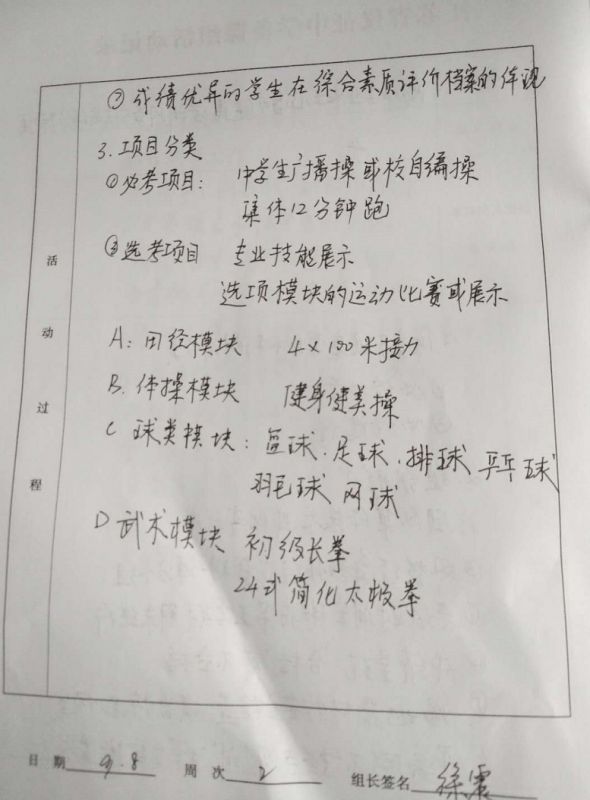 ③成绩优异的学生在综合素质评价档案的体现
3.项目分类
①必考项目: 中学生广播操或校自编操
集体12分钟跑
②选考项目 专业技能展示
选项模块的运动比赛或展示
A:田径模块 4×100米接力
B.体操模块 健身健美操
C 球类模块:篮球.足球.排球 乒乓球
羽毛球 网球
D 武术模块 初级长拳
24式简化太极拳
活动过程
日期 9.8 周次 2 组长签名 徐震